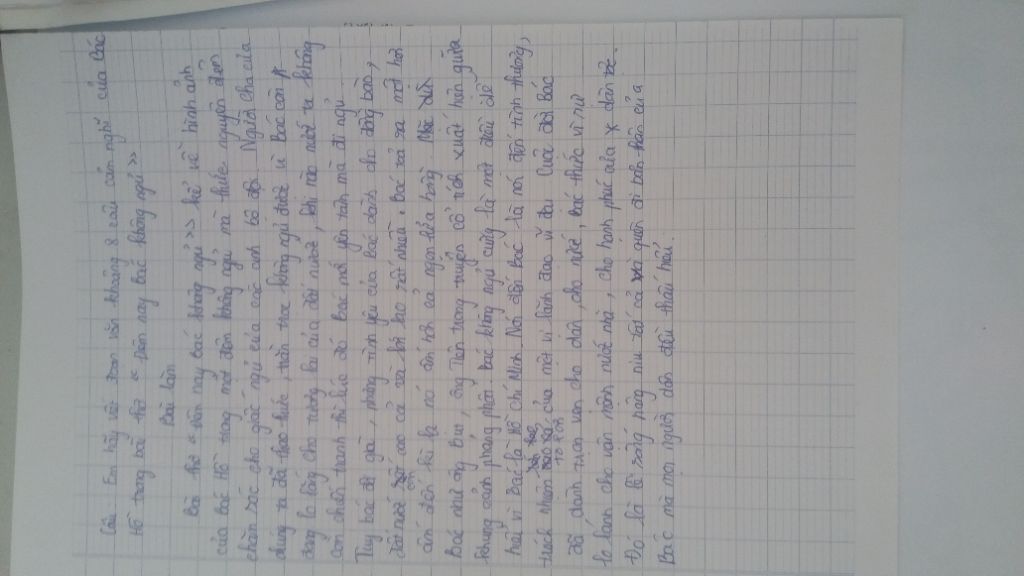 Câu Em hãy viết đoạn văn khoảng 8 câu cảm nghĩ của Bác
Hồ trong bài thơ « Đêm nay Bác không ngủ »
Bài làm
Bài thơ « Đêm nay Bác không ngủ » kể về hình ảnh
của Bác Hồ trong một đêm không ngủ mà thức nguyên đêm
chăm sóc cho giấc ngủ của các anh bộ đội. Người Cha của
chúng ta đã thao thức, trằn trọc không ngủ được vì bác còn
đang lo lắng cho tương lai của đất nước, khi nào nước ta không
còn chiến tranh thì lúc đó Bác mới yên tâm mà đi ngủ.
Tuy bác đã già, nhưng tình yêu của Bác dành cho đồng bào,
đất nước còn cao cả và lớn lao rất nhiều. Bác tỏa ra một hơi
ấm đến kì lạ nó ấm hơn cả ngọn lửa hồng.
Bác như ông Bụt, ông Tiên trong truyện cổ tích xuất hiện giữa
khung cảnh phép. Bác không ngủ cũng là một điều dễ
hiểu vì Bác là Hồ Chí Minh. Nói đến Bác là nói đến tình thương,
trách nhiệm của một vị lãnh đạo vĩ đại. Cuộc đời Bác
to lớn
đã dành trọn vẹn cho dân, cho nước, Bác thức vì nỗi
lo lắng cho vận mệnh nước nhà, cho hạnh phúc của dân
Đó là lẽ sống nâng niu tất cả quên đi bản thân của
Bác mà mọi người dân đều thấu hiểu.